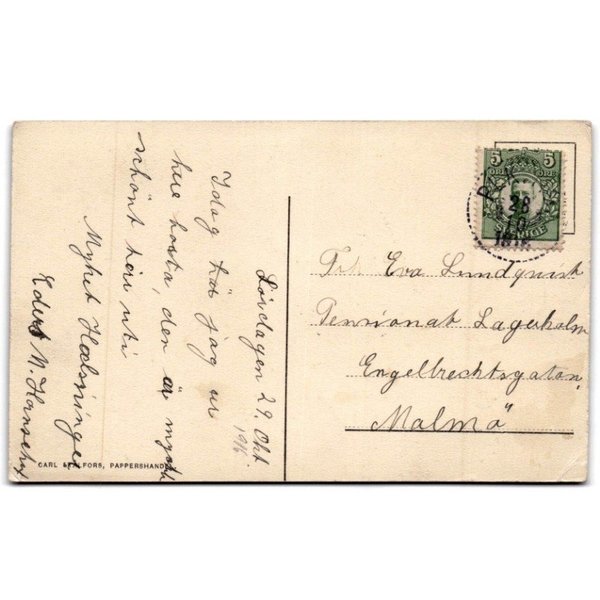 Lördagen 29. Okt.
1916
Idag tos jag ur
here hosta, den är mycket
schönt her uti
Myket Helsninger
Edert N.
CARL FORS, PAPPERSHANDEL
5 5
ÖRE ÖRE
SVERIGE
28
10
Frk Eva Lundquist
Pensionat Lagerholm
Engelbrechtsgatan,
Malmö